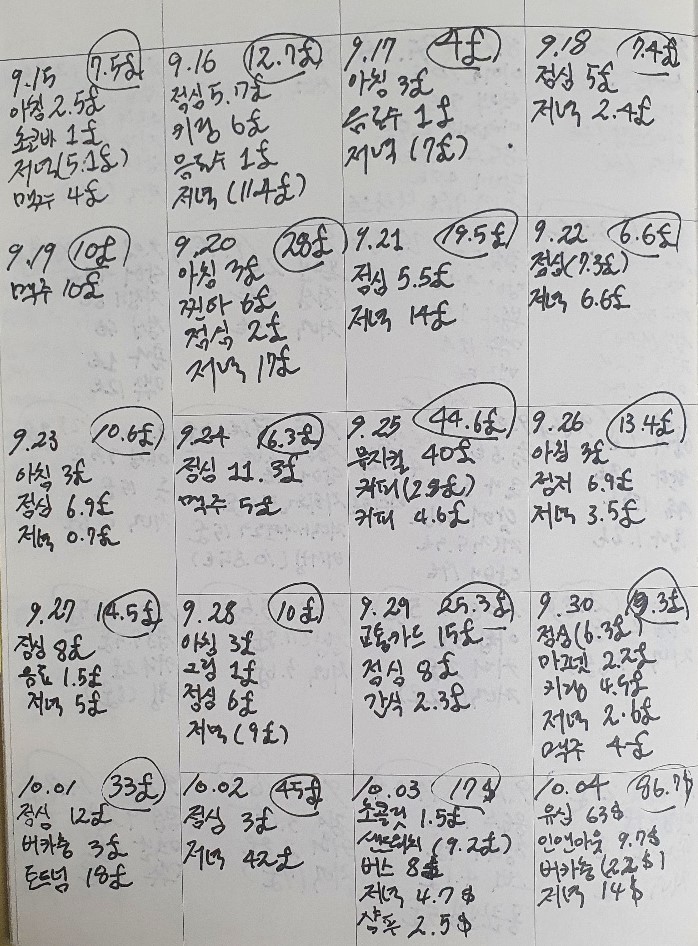 9.15 7.5£
아침 2.5£
초코바 1£
저녁(5.1£)
맥주 4£
9.16 12.7£
점심 5.7£
키링 6£
음료수 1£
저녁 (11.4£)
9.17 4£
아침 3£
음료수 1£
저녁 (7£)
9.18 7.4£
점심 5£
저녁 2.4£
9.19 10£
맥주 10£
9.20 28£
아침 3£
6£
점심 2£
저녁 17£
9.21 19.5£
점심 5.5£
저녁 14£
9.22 6.6£
점심(7.3£)
저녁 6.6£
9.23 10.6£
아침 3£
점심 6.9£
저녁 0.7£
9.24 16.3£
점심 11.3£
맥주 5£
9.25 44.6£
뮤지컬 40£
커피
커피 4.6£
9.26 13.4£
아침 3£
6.9£
저녁 3.5£
9.27 14.5£
점심 8£
음료 1.5£
저녁 5£
9.28 10£
아침 3£
그림 1£
점심 6£
저녁 (9£)
9.29 25.3£
교통카드 15£
점심 8£
간식 2.3£
9.30
점심(6.3£)
마그넷 2.2£
키링 4.5£
저녁 2.6£
맥주 4£
10.01 33£
점심 12£
버카충 3£
토트넘 18£
10.02 45£
점심 3£
저녁 42£
10.03 17$
초콜릿 1.5£
샌드위치 (9.2£)
버스 8$
저녁 4.7$
샴푸 2.5$
10.04 86.7$
유심 63$
인앤아웃 9.7$
버카충 (22$)
저녁 14$